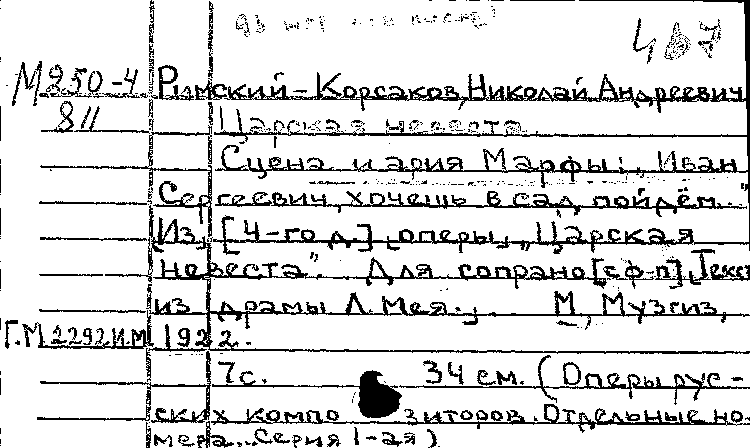 467
М250-4 Римский-Корсаков, Николай Андреевич
811 Царская невеста.
Сцена и ария Марфы: „Иван
Сергеевич, хочешь в сад пойдём..."
[Из] [4-го д.] [оперы] „Царская
невеста". Для сопрано [с ф-п] Текст
из драмы Л. Мея. М., Музгиз,
Г.М 2292И.М 1922.
7с. 34 см. (Оперы рус-
ских компо зиторов. Отдельные но-
мера. Серия 1-ая)